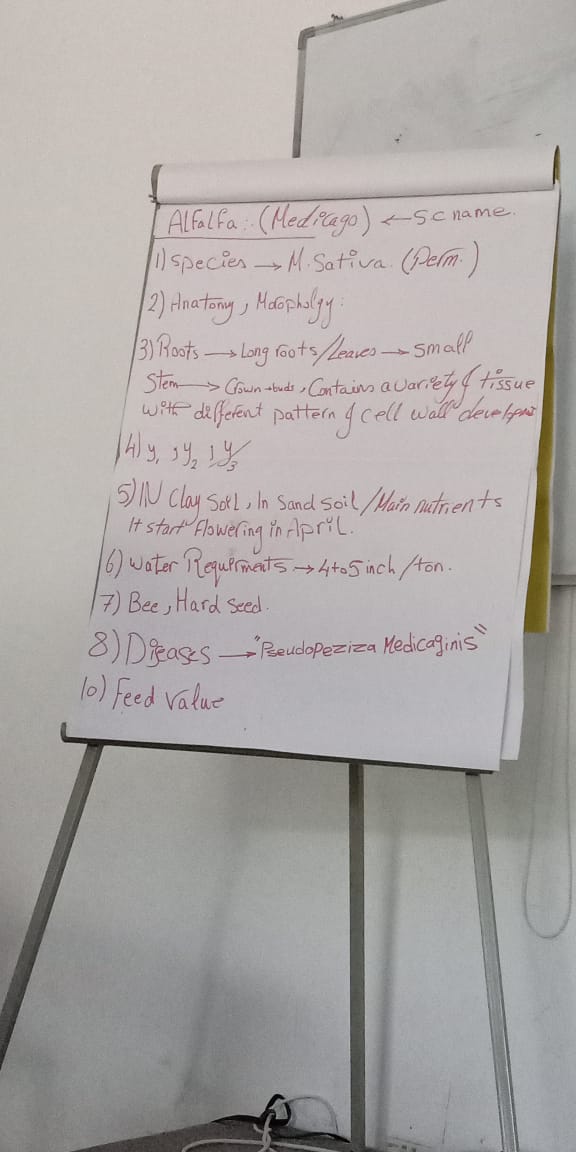 Alfalfa:. (Medicago) ← Sc name.
1) Species → M. Sativa. (Perm.)
2) Anatomy, Morphology:
3) Roots → Long roots/Leaves → Small
Stem → Crown → buds, Contains a variety of tissue
with different pattern of cell wall
4) y1, y2, y3
5) IN Clay Soil, In Sand Soil/Main nutrients
It start flowering in April.
6) Water Requirments → 4 to 5 inch/ton.
7) Bee, Hard Seed.
8) → "Pseudopeziza Medicaginis"
10) Feed Value